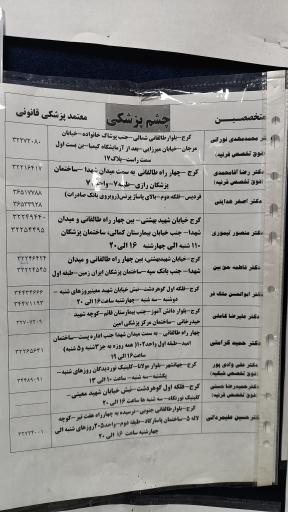 متخصصین
چشم پزشکی
معتمد پزشکی قانونی
دکتر محمدمهدی نورائی
(فوق تخصص قرنیه)
کرج-بلوار طالقانی شمالی-جنب پوشاک خانواده-خیابان
مرجان-خیابان میرزایی-بعد از آزمایشگاه کیمیا-بن بست اول
سمت راست-پلاک۱۷
۳۲۲۷۲۰۸۰
دکتر رضا آقامحمدی
(فوق تخصص قرنیه)
کرج - چهار راه طالقانی به سمت میدان شهدا - ساختمان
پزشکان رازی-طبقه
۳۲۲۱۶۴۱۷
دکتر اصغر هدایتی
فردیس-فلکه دوم-بالای پاساژ پرنس(روبروی بانک صادرات)
۳۶۵۱۷۷۸۸
۳۶۵۳۹۲۸
دکتر منصور تیموری
کرج خیابان شهید بهشتی- بین چهار راه طالقانی و میدان
شهدا- جنب خیابان بیمارستان کمالی- ساختمان پزشکان
۱۱۰ شنبه الی چهارشنبه ۱۶ الی۲۰
۳۲۲۴۹۴۴۰
۳۲۲۵۴۴۹۵
دکتر فاطمه حق بین
کرج-خیابان شهیدبهشتی- بین چهار راه طالقانی و میدان
شهدا- جنب بانک سپه-ساختمان پزشکان ایران زمین-طبقه اول
۳۲۲۴۶۴۲۴
۳۲۲۲۴۵۴۵
دکتر ابوالحسن ملک فر
کرج-فلکه اول گوهردشت-نبش خیابان شهید معینی
دوشنبه - سه شنبه - چهارشنبه ساعت۱۶ الی ۲۰
۳۴۴۷۱۱۹۳
دکتر علیرضا کاملی
کرج-بلوار دانش آموز- جنب بیمارستان قائم-کوچه شهید
حیدرخانی -ساختمان مرکز پزشکی امین
دکتر حمید کرامتی
چهار راه طالقانی - به سمت میدان شهدا جنب اداره پست-ساختمان
امید-طبقه اول واحد۱۰۲( همه روزه به جز۳شنبه و۵ شنبه)
ساعت۱۶ الی ۱۹
۳۲۲۶۵۶۳۱
دکتر علی وادی پور
کرج-جهانشهر- بلوار مولانا-کلینیک نوردیدگان روزهای شنبه-
یکشنبه-سه شنبه- ساعت ۱۰ الی ۱۳
۳۴۴۸۰۹۱
دکتر حمیدرضا حسنی
(فوق تخصص قرنیه)
کرج-فلکه اول گوهردشت-نبش خیابان شهید معینی-
کلینیک نورنگاه- سه شنبه ها ساعت ۱۶ الی ۲۰
دکتر حسین علیمردانی
کرج-بلوار طالقانی جنوبی-نرسیده به چهارراه هفت تیر-کوچه
لاله ۵-ساختمان پاسارگاد- طبقه دوم-واحد۲۰۵روزهای شنبه الی
چهارشنبه ساعت ۱۶ الی ۲۰